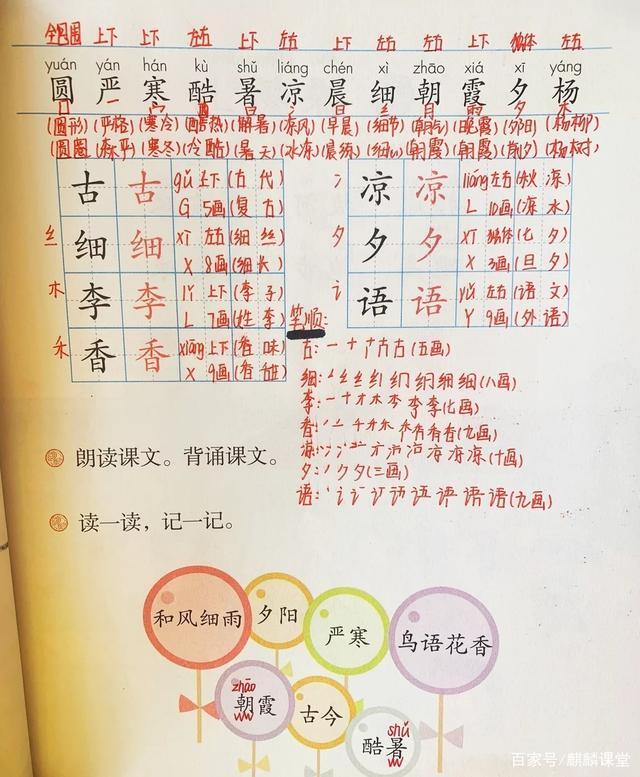 全包围 上下 上下 左右 上下 左右 上下 左右 左右 上下 独体 左右
yuán yán hán kù shǔ liáng chén xì zhāo xiá xī yáng
圆 严 寒 酷 暑 凉 晨 细 朝 霞 夕 杨
囗 一 宀 酉 日 冫 日 纟 月 雨 夕 木
(圆形) (严格) (寒冷) (酷热) (避暑) (凉风) (早晨) (细节) (晚霞) (夕阳) (杨柳)
(圆圈) (森严) (寒冬) (冷酷) (暑天) (冰凉) (晨练) (细心) (朝霞) (朝霞) (杨树)
古 古 gǔ 上下 (古代)
G 5画 (复古)
冫 凉 凉 liáng 左右 (秋凉)
L 10画 (凉水)
纟 细 细 xì 左右 (细丝)
X 8画 (细长)
夕 夕 夕 xī 独体 (七夕)
X 3画 (旦夕)
木 李 李 lǐ 上下 (李子)
L 7画 (姓李)
讠 语 语 yǔ 左右 (语文)
Y 9画 (外语)
禾 香 香 xiāng 上下 (香味)
X 9画 (香甜)
笔顺:
古: 一 十 古 (五画)
细: 细 (八画)
李: 一 十 才 木 李 (七画)
香: 香 (九画)
凉: 凉 (十画)
夕: 丿 ク 夕 (三画)
语: 语 (九画)
朗读课文。背诵课文。
读一读，记一记。
和风细雨 夕阳 严寒 鸟语花香
zhāo
朝霞 古今
shǔ
酷暑
百家号/麒麟课堂